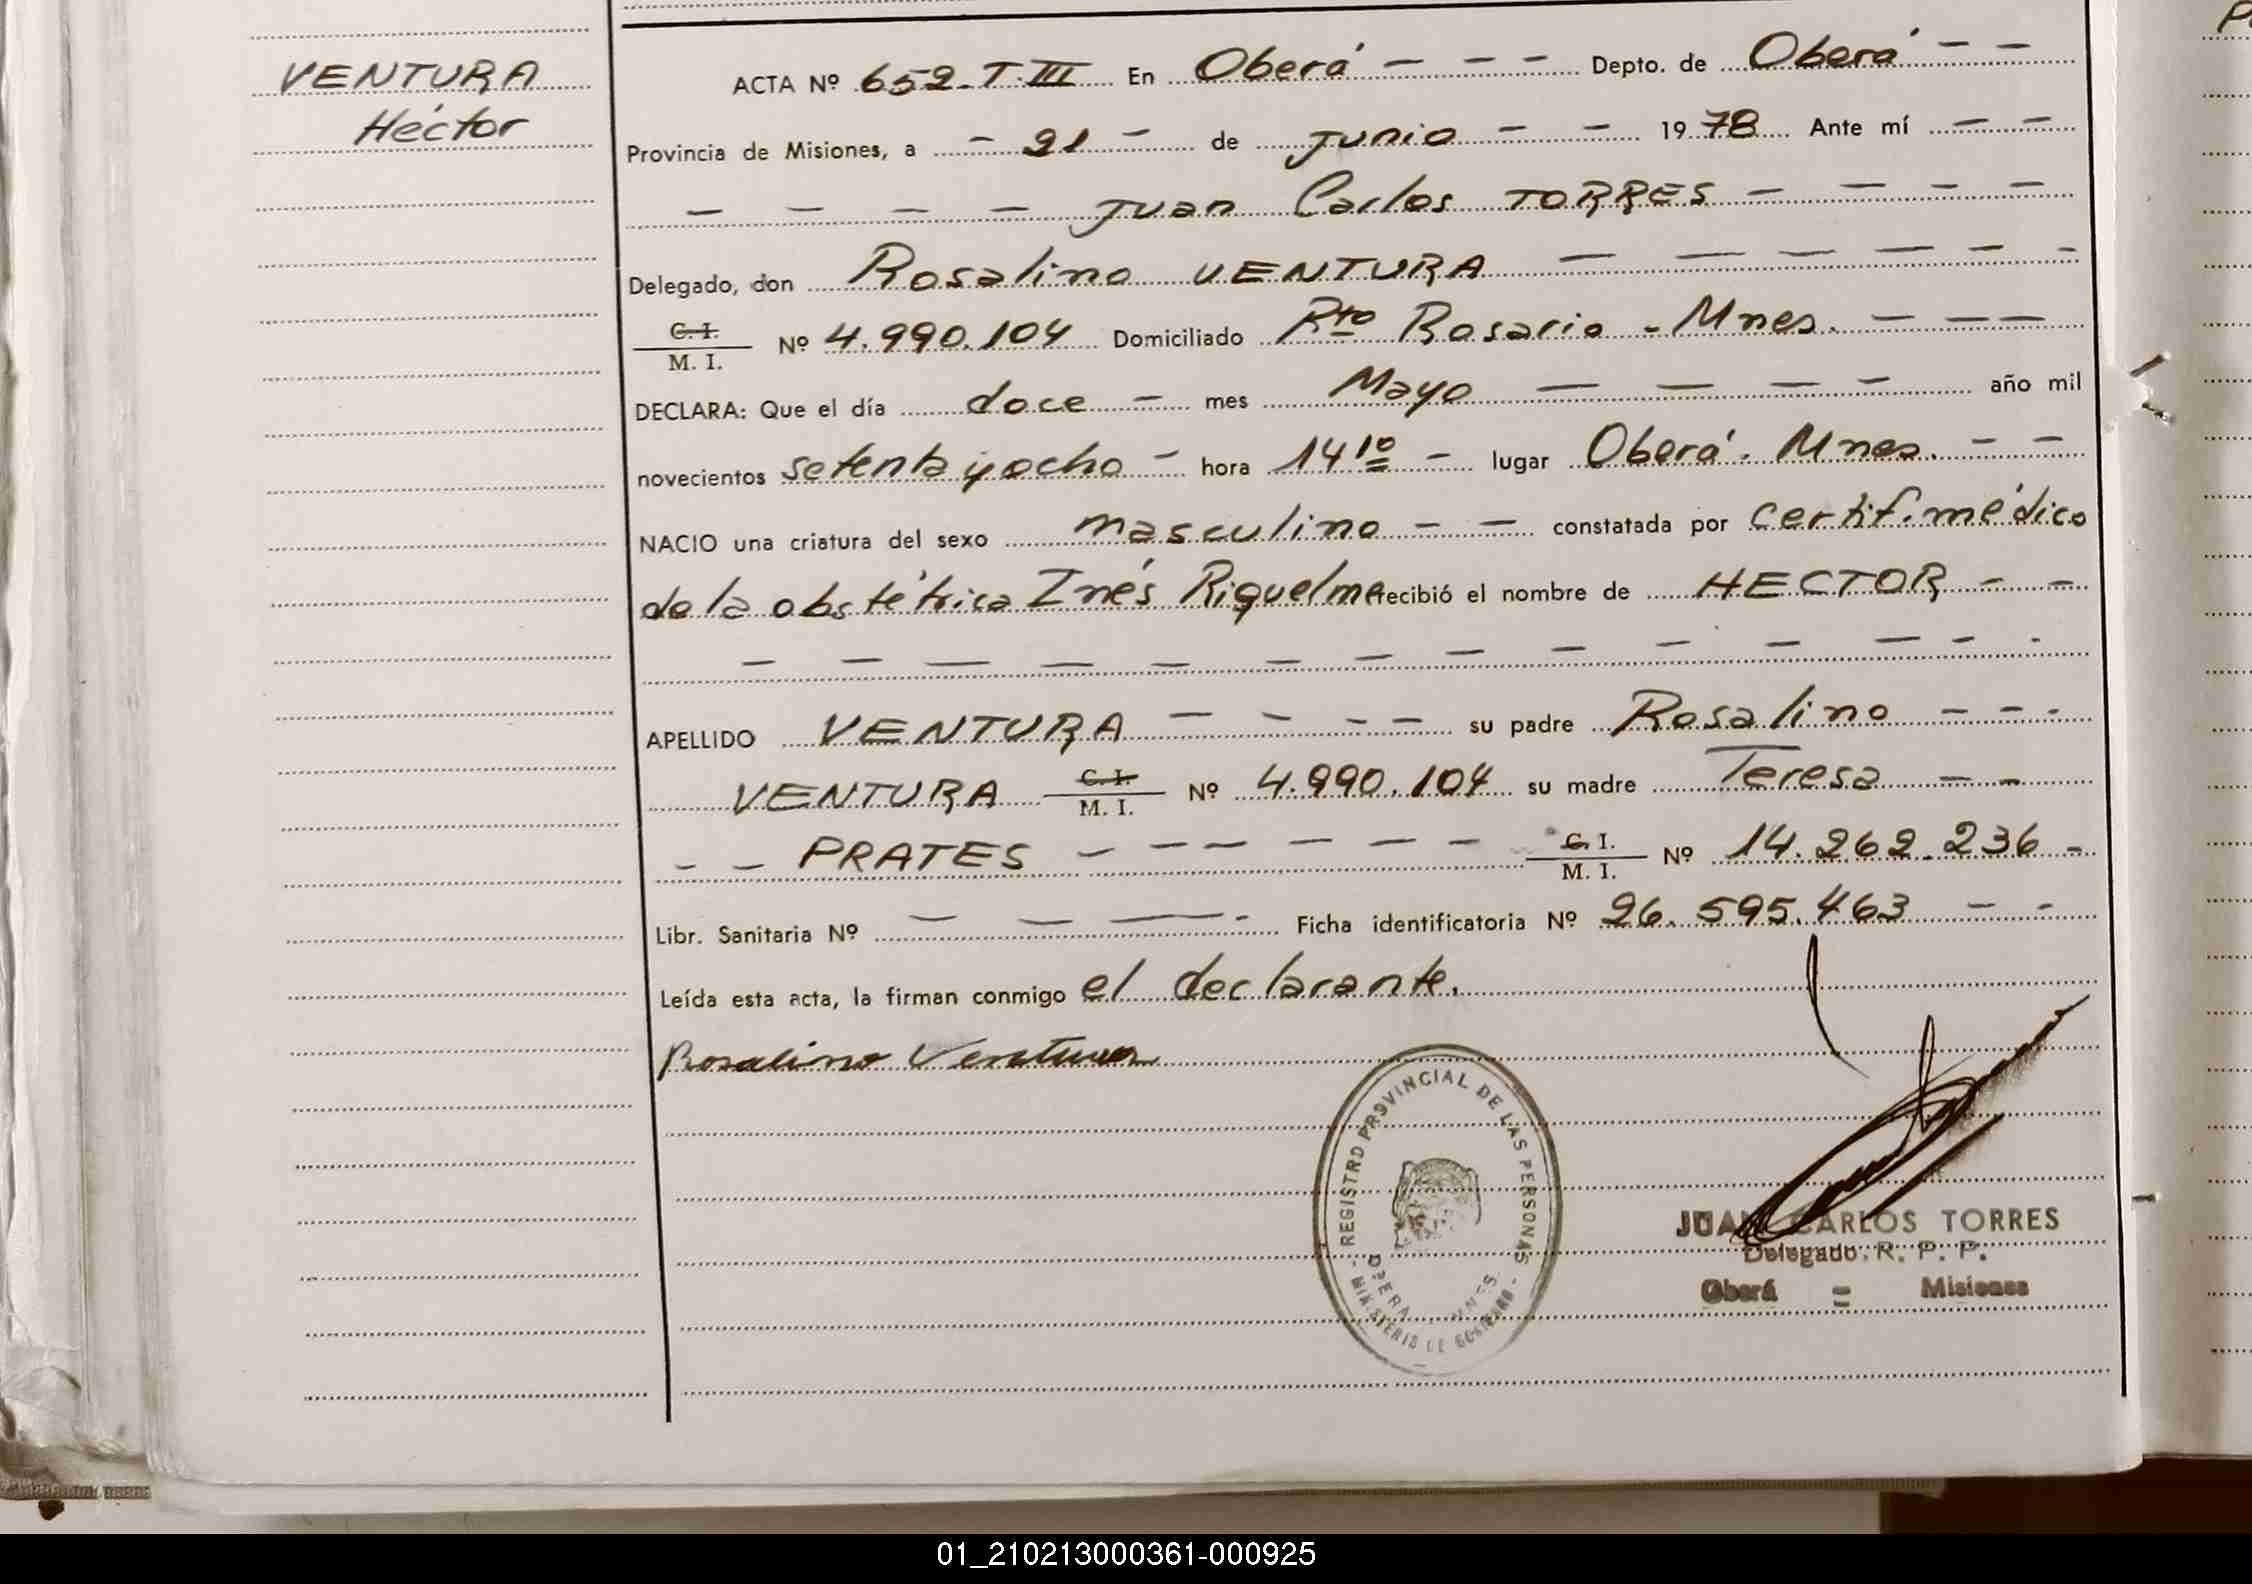 VENTURA
Héctor
ACTA Nº 652-T-III En Oberá - - - Depto. de Oberá - -
Provincia de Misiones, a - 21 - de Junio - - 1978 Ante mí - -
- - - - Juan Carlos TORRES - - - -
Delegado, don Rosalino VENTURA - - - - - -
C. I.
M. I. Nº 4.990.104 Domiciliado Rto Rosario - Mnes. - - -
DECLARA: Que el día doce - mes Mayo - - - - año mil
novecientos setenta y ocho - hora 14 10 - lugar Oberá. Mnes. - -
NACIO una criatura del sexo masculino - - constatada por certif. médico
de la obstétrica Inés Riquelme recibió el nombre de HECTOR - -
- - - - - - - - - - - - -
APELLIDO VENTURA - - - - su padre Rosalino - - -
VENTURA C. I.
M. I. Nº 4.990.104 su madre Teresa - -
- - PRATES - - - - - - C. I.
M. I. Nº 14.262.236 -
Libr. Sanitaria Nº - - - - Ficha identificatoria Nº 26.595.463 - -
Leída esta acta, la firman conmigo el declarante.
Rosalino Ventura
- REGISTRO PROVINCIAL DE LAS PERSONAS -
OBERA
MINISTERIO DE GOBIERNO
JUAN CARLOS TORRES
Delegado R. P. P.
Oberá - Misiones
01_210213000361-000925